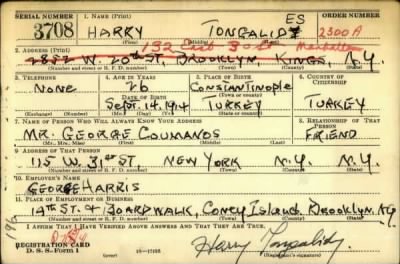 SERIAL NUMBER 1. NAME (Print) ORDER NUMBER
3708 HARRY TONGALIDES 2300A
(First) (Middle) (Last)
2. ADDRESS (Print) 152 East 30 St Manhattan
2852 W. 20TH ST, BROOKLYN, KINGS, N.Y.
(Number and street or R. F. D. number) (Town) (County) (State)
3. TELEPHONE 4. AGE IN YEARS 5. PLACE OF BIRTH 6. COUNTRY OF CITIZENSHIP
NONE 26 CONSTANTINOPLE
DATE OF BIRTH (Town or county)
Sept. 14, 1914 TURKEY TURKEY
(Exchange) (Number) (Mo.) (Day) (Yr.) (State or country)
7. NAME OF PERSON WHO WILL ALWAYS KNOW YOUR ADDRESS 8. RELATIONSHIP OF THAT PERSON
MR. GEORGE COUMANOS FRIEND
(Mr., Mrs., Miss) (First) (Middle) (Last)
9. ADDRESS OF THAT PERSON
115 W. 31ST ST, NEW YORK N.Y. N.Y.
(Number and street or R. F. D. number) (Town) (County) (State)
10. EMPLOYER'S NAME
GEORGE HARRIS
11. PLACE OF EMPLOYMENT OR BUSINESS
19TH ST. & BOARDWALK, CONEY Island. Brooklyn. N.Y
(Number and street or R. F. D. number) (Town) (County) (State)
I AFFIRM THAT I HAVE VERIFIED ABOVE ANSWERS AND THAT THEY ARE TRUE.
REGISTRATION CARD
D. S. S. Form 1 16-17105 Harry Tongalides